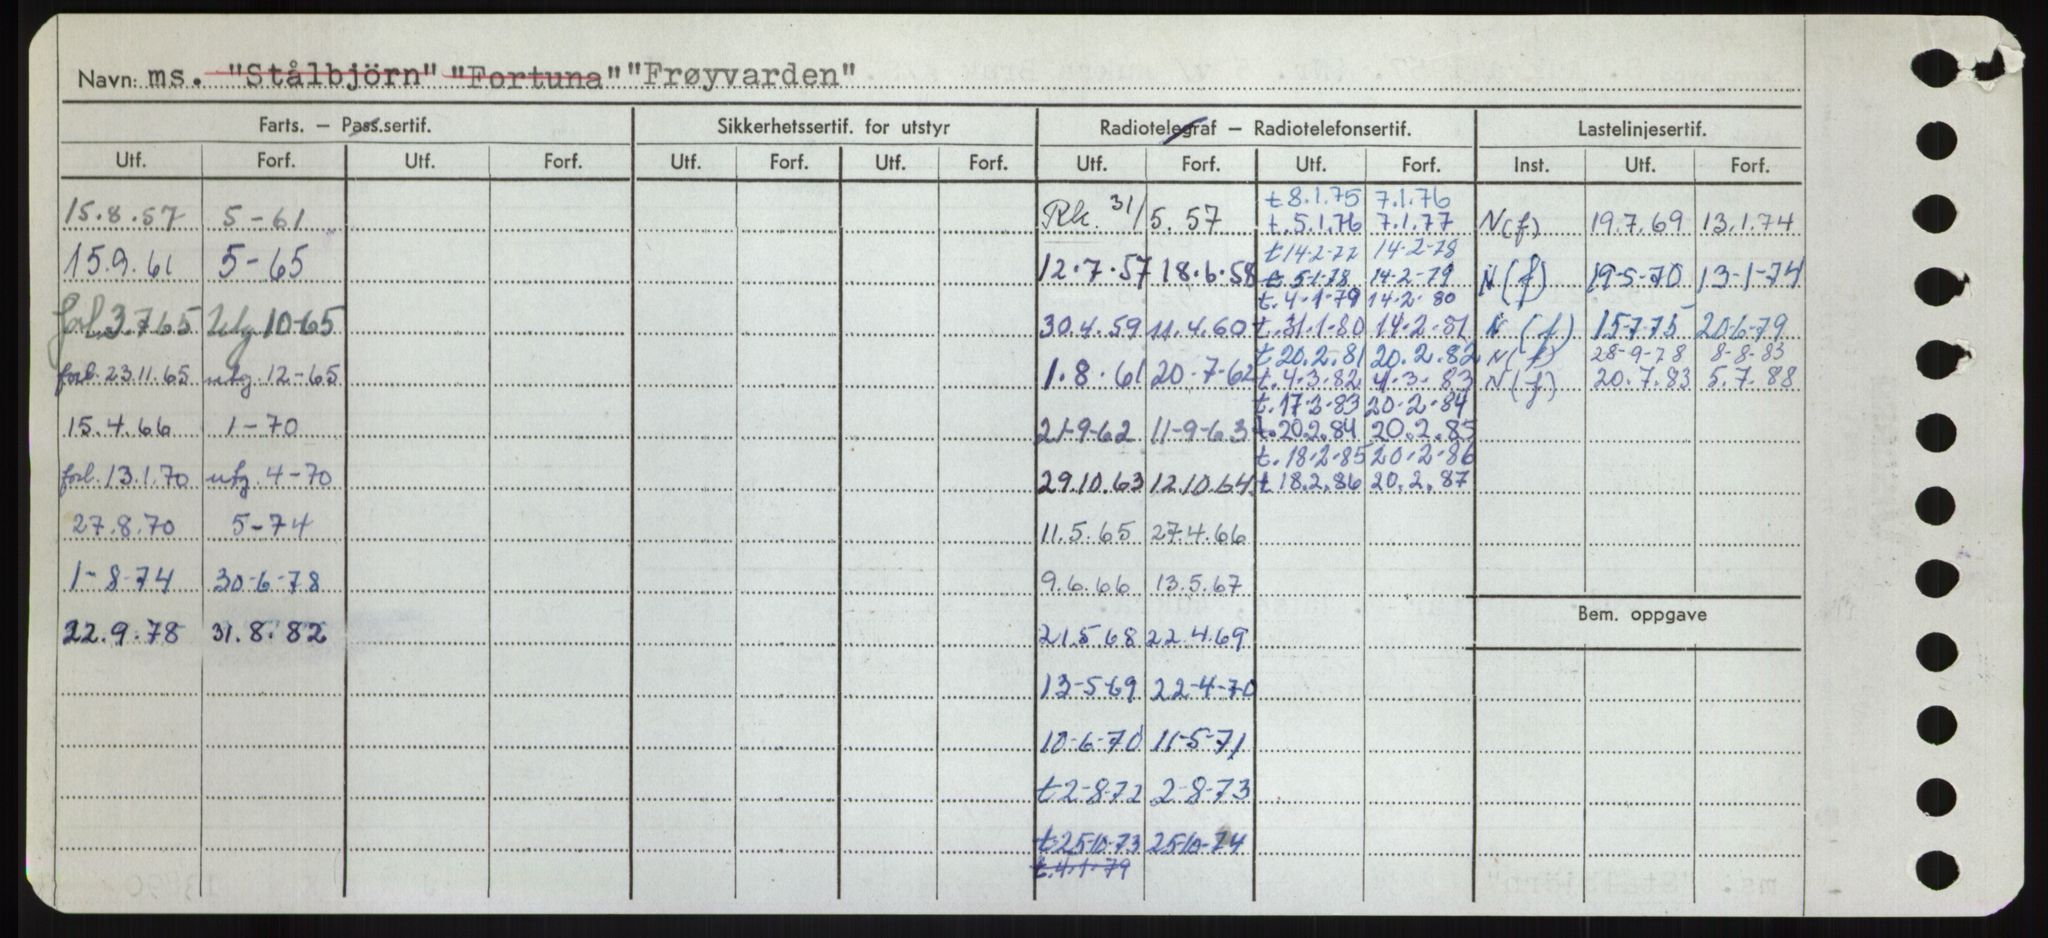 Navn: ms. "Stålbjörn" "Fortuna" "Frøyvarden"
Farts. – Pass.sertif. Sikkerhetssertif. for utstyr Radiotelegraf – Radiotelefonsertif. Lastelinjesertif.
Utf. Forf. Utf. Forf. Utf. Forf. Utf. Forf. Utf. Forf. Utf. Forf. Inst. Utf. Forf.
t 8.1.75 7.1.76
15.8.57 5-61 Rk. 31/5.57 t.5.1.76 7.1.77 N(f) 19.7.69 13.1.74
t 14-2-77 14-2-78
15.9.61 5-65 12.7.57 18.6.58 t 5-1-78 14-2-79 N(f) 19-5-70 13-1-74
t.4-1-79 14-2-80
forl. 3.7.65 utg 10-65 30.4.59 11.4.60 t.31-1-80 14-2-81 N(f) 15-7-75 20-6-79
t 20.2.81 20.2.82 N(f) 28-9-78 8-8-83
forl. 23.11.65 utg. 12-65 1.8.61 20-7-62 t.4-3-82 4-3-83 N(f) 20.7.83 5.7.88
t.17-2-83 20-2-84
15.4.66 1-70 21-9-62 11-9-63 t.20.2.84 20.2.85
t.18-2-85 20-2-86
forl. 13.1.70 utg. 4-70 29.10.63 12.10.64 t 18.2.86 20.2.87
27.8.70 5-74 11.5.65 27.4.66
1-8-74 30-6-78 9.6.66 13.5.67
Bem. oppgave
22.9.78 31.8.82 21.5.68 22.4.69
13-5-69 22-4-70
10-6-70 11-5-71
t 2-8-72 2-8-73
t.25-10-73 25-10-74
t.4-1-79